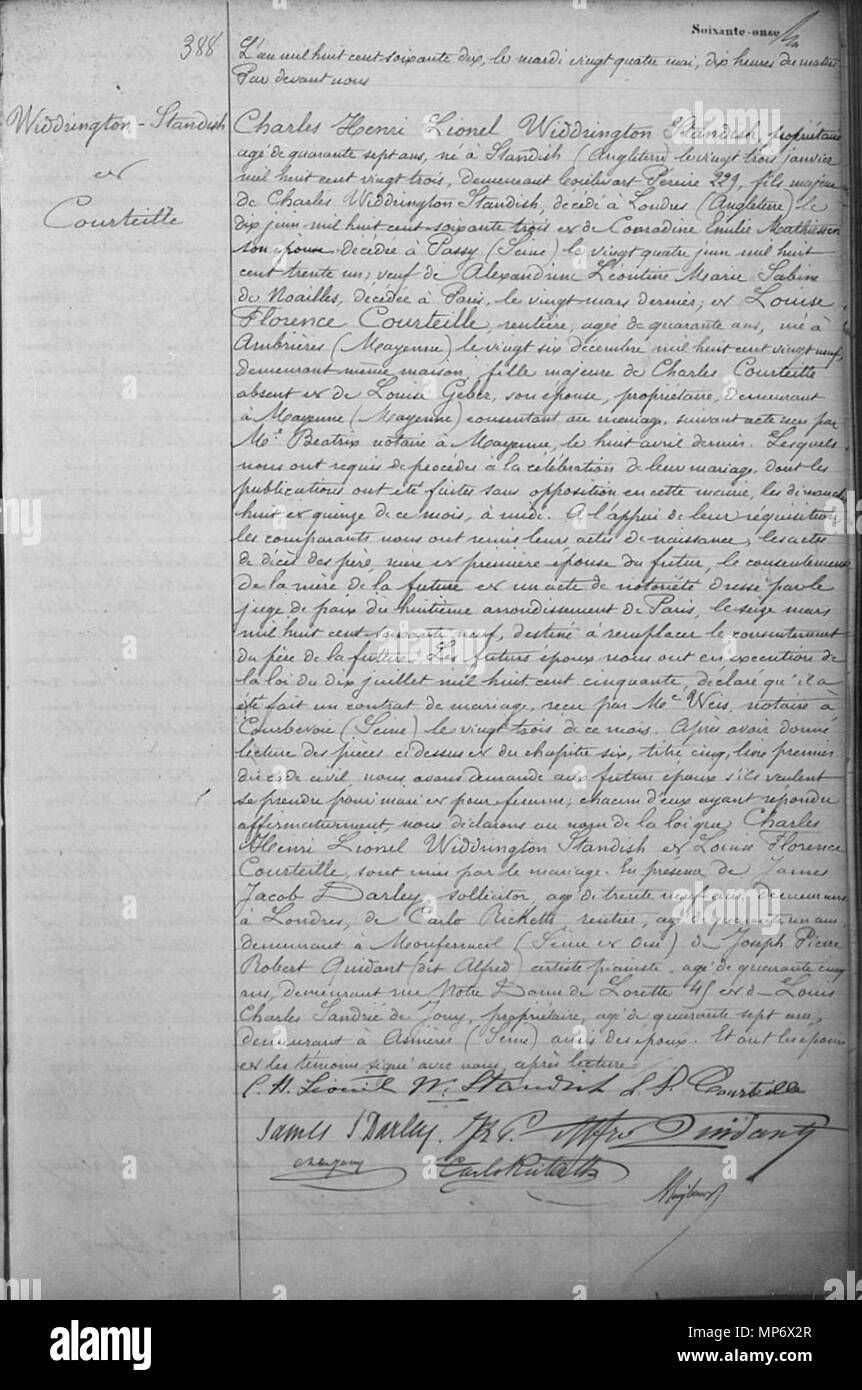 Soixante-onze
388
L'an mil huit cent soixante dix, le mardi vingt quatre mai, dix heures du matin
Par devant nous
Widdrington-Standish
et
Courteille
Charles Henri Lionel Widdrington Standish, propriétaire
agé de quarante sept ans, né à Standish (Angleterre) le vingt trois janvier
mil huit cent vingt trois, demeurant boulevart Péreire 229, fils majeur
de Charles Widdrington Standish, décédé à Londres (Angleterre) le
dix juin mil huit cent soixante trois et de Conradine Emilie Mathiessen
son épouse, décédée à Passy (Seine) le vingt quatre juin mil huit
cent trente un; veuf de Alexandrine Léontine Marie Sabine
de Noailles, décédée à Paris, le vingt mars dernier; et Louise
Florence Courteille, rentière, agée de quarante ans, née à
Ambrières (Mayenne) le vingt six décembre mil huit cent vingt neuf,
demeurant même maison, fille majeure de Charles Courteille
absent et de Louise Geber, son épouse, propriétaire, demeurant
à Mayenne (Mayenne) consentant au mariage, suivant acte reçu par
Me Beatrix notaire à Mayenne, le huit avril dernier. Lesquels
nous ont requis de procéder à la célébration de leur mariage, dont les
publications ont été faites sans opposition en cette mairie, les dimanche
huit et quinze de ce mois, à midi. A l'appui de leur réquisition
les comparants nous ont remis leurs actes de naissance, les actes
de décès des père, mère et première épouse du futur, le consentement
de la mère de la future et un acte de notoriété dressé par le
juge de paix du huitième arrondissement de Paris, le seize mars
mil huit cent soixante neuf, destiné à remplacer le consentement
du père de la future. Les futurs époux nous ont en exécution de
la loi du dix juillet mil huit cent cinquante, déclaré qu'il a
été fait un contrat de mariage, reçu par Me Weis, notaire à
Courbevoie (Seine) le vingt trois de ce mois. Après avoir donné
lecture des pièces ci dessus et du chapitre six, titre cinq, livre premier
du code civil nous avons demandé aux futurs époux s'ils veulent
se prendre pour mari et pour femme; chacun d'eux ayant répondu
affirmativement, nous déclarons au nom de la loi que Charles
Henri Lionel Widdrington Standish et Louise Florence
Courteille, sont unis par le mariage. En présence de James
Jacob Darley sollicitor, agé de trente neuf ans, demeurant
à Londres, de Carlo Ricketts rentier, agé de quarante un ans,
demeurant à Montfermeil (Seine et Oise) de Joseph Pierre
Robert Quidant (dit Alfred) artiste pianiste, agé de quarante cinq
ans, demeurant rue Notre Dame de Lorette 45 et de Louis
Charles Sandrié de Jouy, propriétaire, agé de quarante sept ans,
demeurant à Asnières (Seine) amis des époux. Et ont les époux
et les témoins signé avec nous, après lecture
C. H. Lionel W. Standish L. F. Courteille
James J Darley. Alfred Quidant
Carlo Ricketts
alamy stock photo
alamy
Image ID: MP6X2R
www.alamy.com